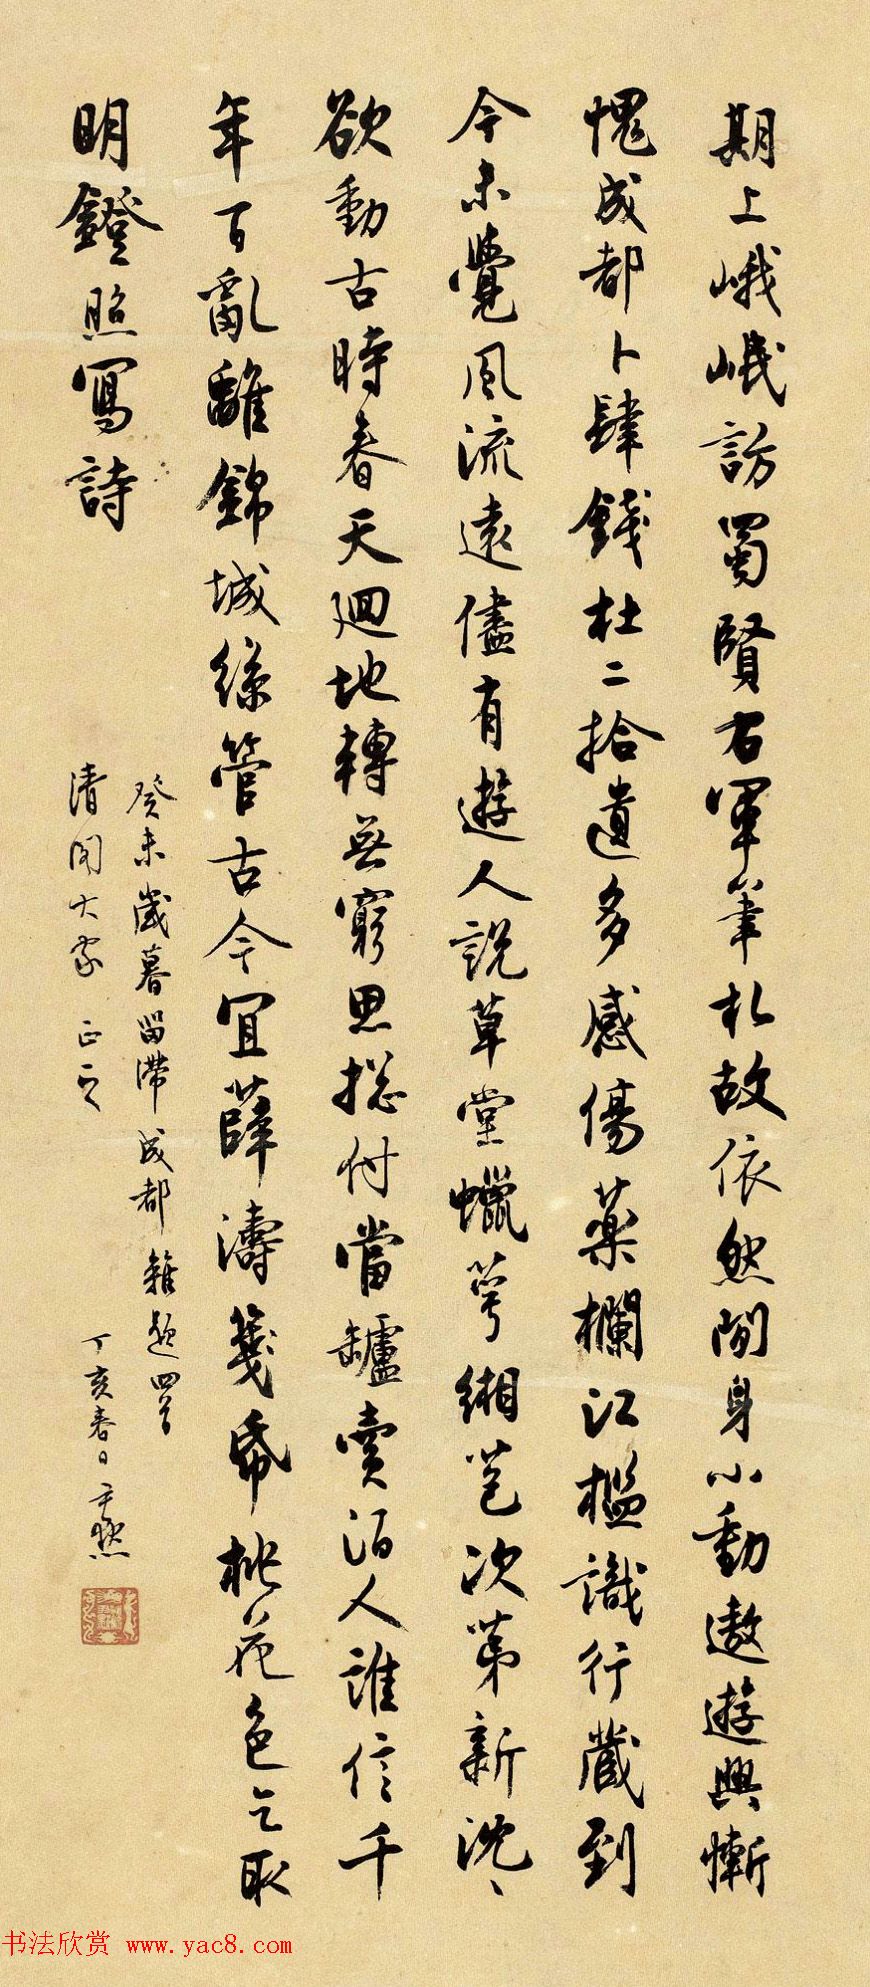 期上峨岷訪蜀賢右軍筆札故依然閒身小動遨遊興慚
愧成都卜肆錢杜二拾遺多感傷藥欄江檻識行藏到
今未覺風流遠儘有遊人說草堂蠟萼緗苞次第新沈〻
欲動古時春天迴地轉無窮思摠付當罏賣酒人誰信千
年百亂離錦城絲管古今宜薛濤箋帋桃花色乞取
明鐙照寫詩
癸未歲暮留滯成都雜題四首
清閣大家 正之
丁亥春日尹默
书法欣赏 www.yac8.com